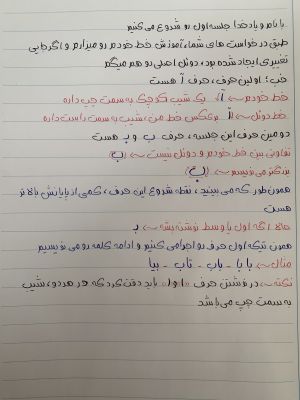 با نام و یاد خدا جلسه اول رو شروع می کنیم
طبق درخواست های شما، آموزش خط خودم رو میزارم و اگر جایی
تغییری ایجاد شده بود، دوئل اصلی رو هم میگم
خب؛ اولین حرف، حرف آ هست
خط خودم ~> آ یک شیب کوچک به سمت چپ داره
خط دوئل ~> آ برعکس خط من، شیب به سمت راست داره
دومین حرف این جلسه، حرف ب و پ هست
تفاوتی بین خط خودم و دوئل نیست ~> (ب)
بزرگتر می نویسم ~> (ب)
همون طور که می بینید، نقطه شروع این حرف، کمی از پایانش بالاتر
هست
حالا اگه اول یا وسط نوشته بشه ~> بـ
همون تیکه اول حرف رو اجرا می کنیم و ادامه کلمه رو می نویسیم
مثال ~> بابا - باب - تاب - بیا
نکته ~> در نوشتن حرف «ا و آ» باید دقت کرد که در هر دو، شیب
به سمت چپ می باشد